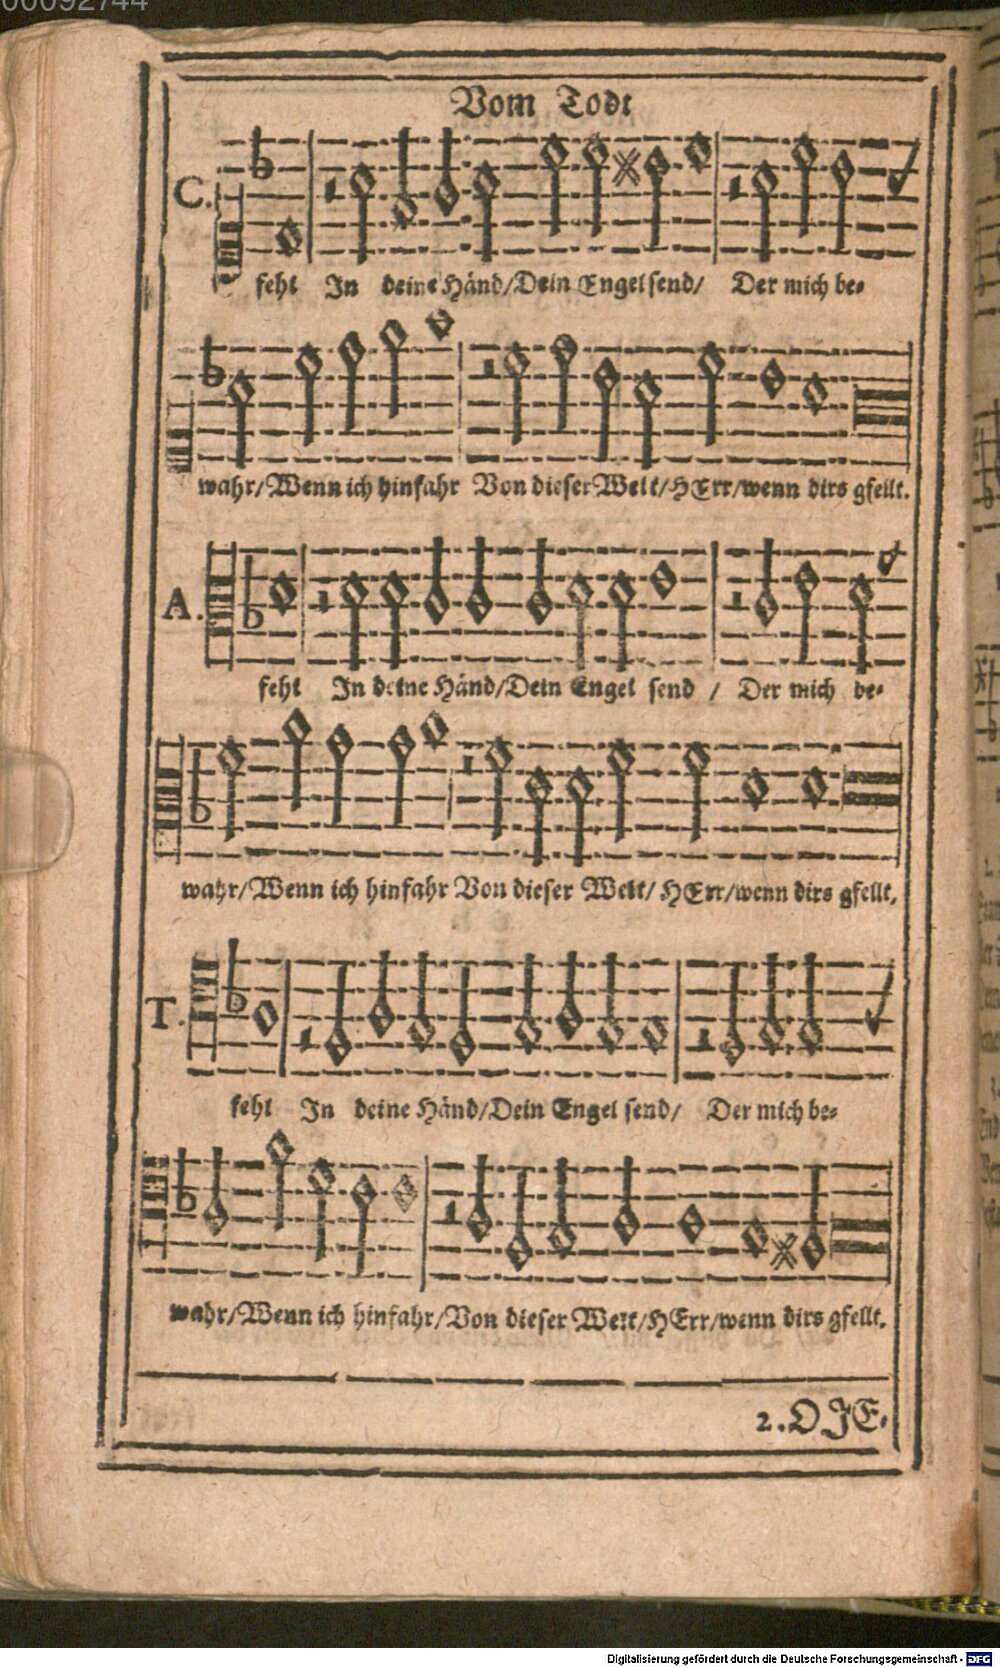 00092744
Vom Todt
C.
fehl In deine Händ/Dein Engel send/ Der mich be-
wahr/Wenn ich hinfahr Von dieser Welt/HErr/wenn dirs gfellt.
A.
fehl In deine Händ/Dein Engel send / Der mich be-
wahr/Wenn ich hinfahr Von dieser Welt/ HErr/wenn dirs gfellt.
T.
fehl In deine Händ/Dein Engel send/ Der mich be-
wahr/Wenn ich hinfahr/Von dieser Welt/HErr/wenn dirs gfellt.
2. OJE.
Digitalisierung gefördert durch die Deutsche Forschungsgemeinschaft - DFG